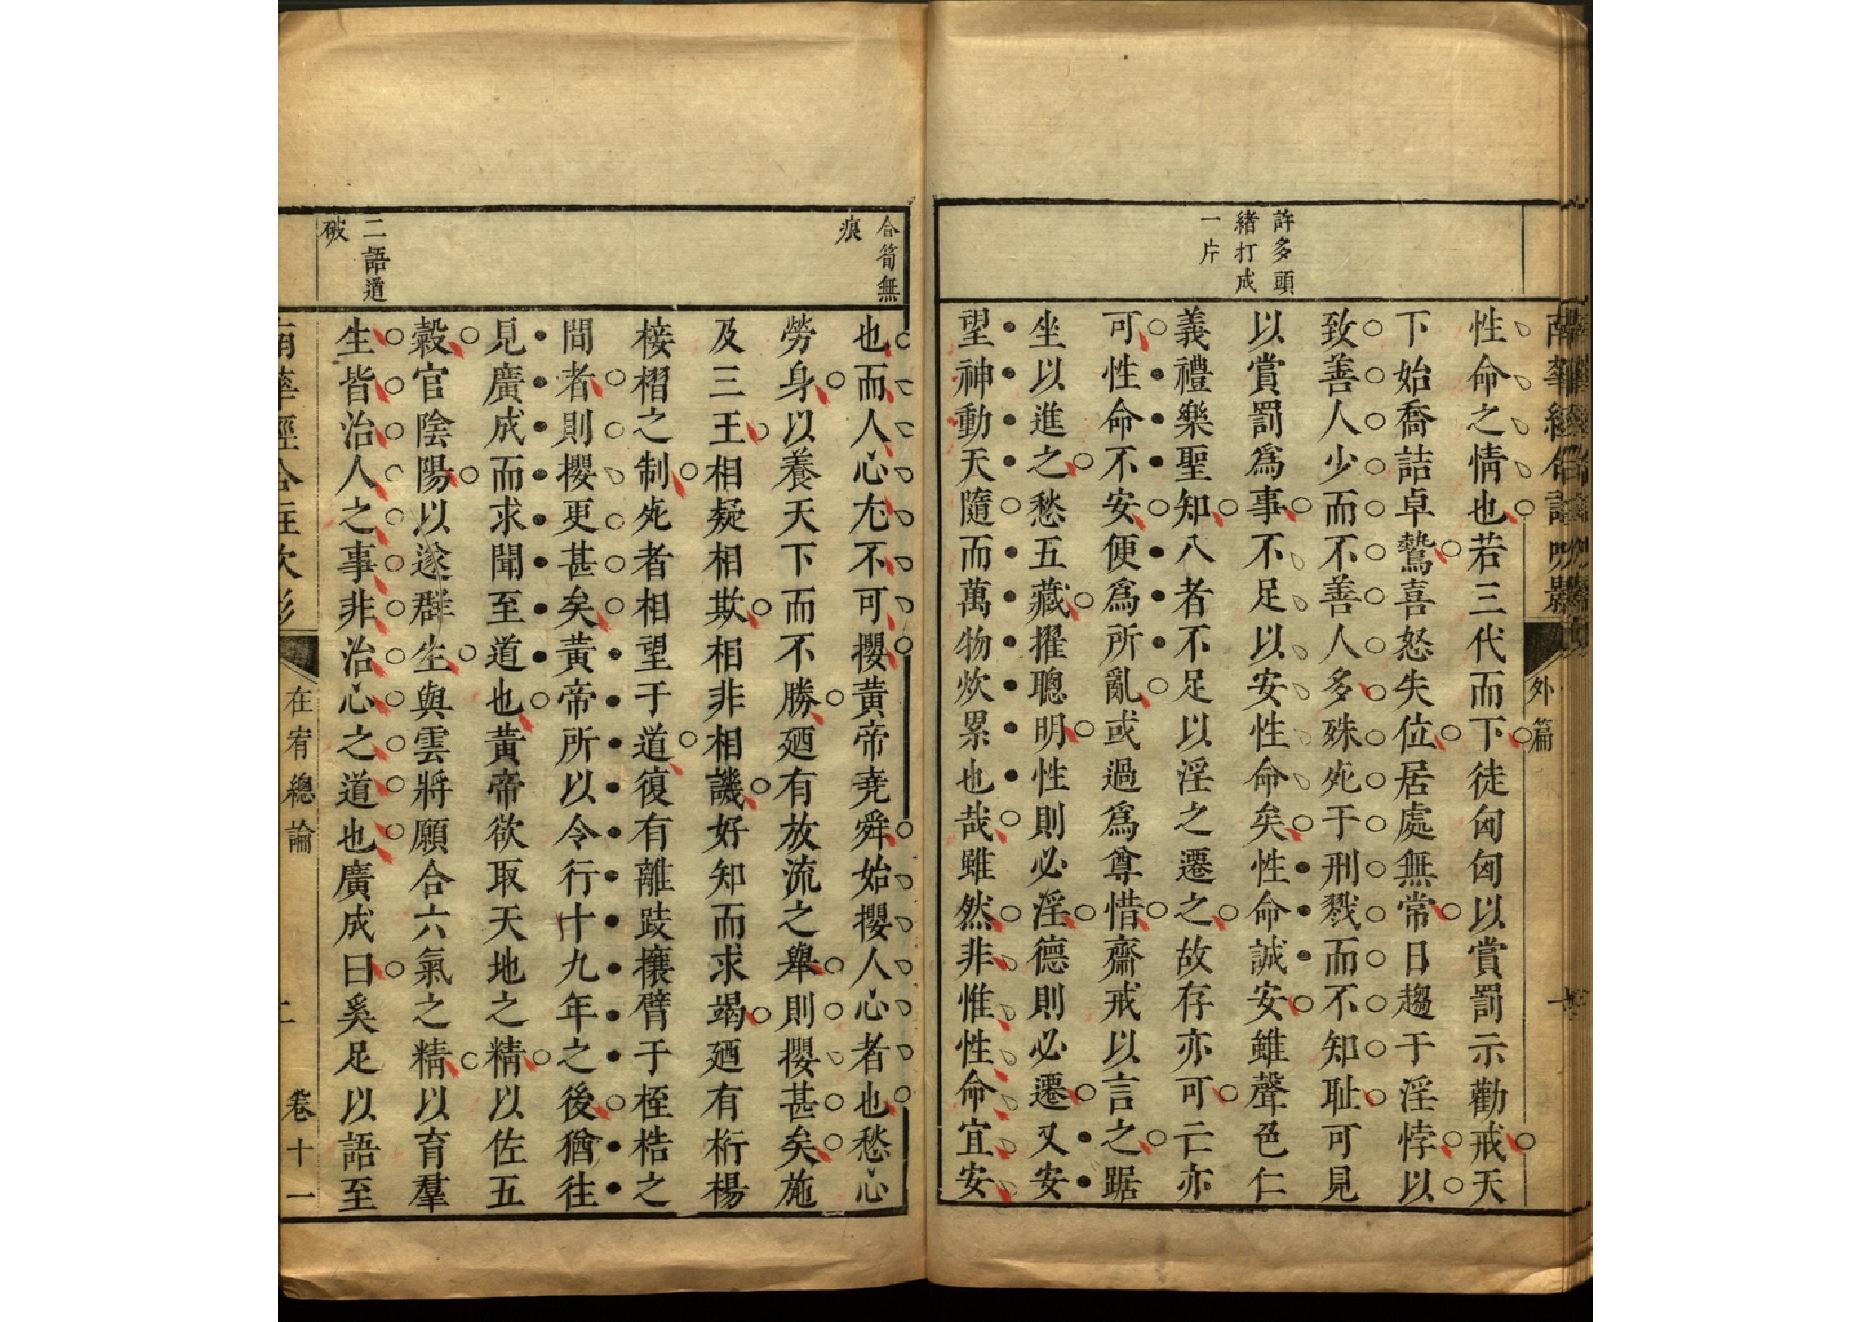 許多頭
緒打成
一片
性命之情也若三代而下徒匈匈以賞罰示勸戒天
下始喬詰卓鷙喜怒失位居處無常日趨于淫悖以
致善人少而不善人多殊死于刑戮而不知耻可見
以賞罰爲事不足以安性命矣性命誠安雖聲色仁
義禮樂聖知八者不足以淫之遷之故存亦可亡亦
可性命不安便爲所亂或過爲尊惜齋戒以言之踞
坐以進之愁五藏擢聰明性則必淫德則必遷又安
望神動天隨而萬物炊累也哉雖然非惟性命宜安
外篇
合筍無
痕
也而人心尤不可攖黃帝堯舜始攖人心者也愁心
勞身以養天下而不勝廼有放流之舉則攖甚矣施
及三王相疑相欺相非相譏好知而求竭廼有桁楊
椄槢之制死者相望于道復有離跂攘臂于桎梏之
間者則攖更甚矣黃帝所以令行十九年之後猶往
見廣成而求聞至道也黃帝欲取天地之精以佐五
穀官陰陽以遂群生與雲將願合六氣之精以育羣
生皆治人之事非治心之道也廣成曰奚足以語至
二語道
破
南華經合註吹影
在宥總論
卷十一